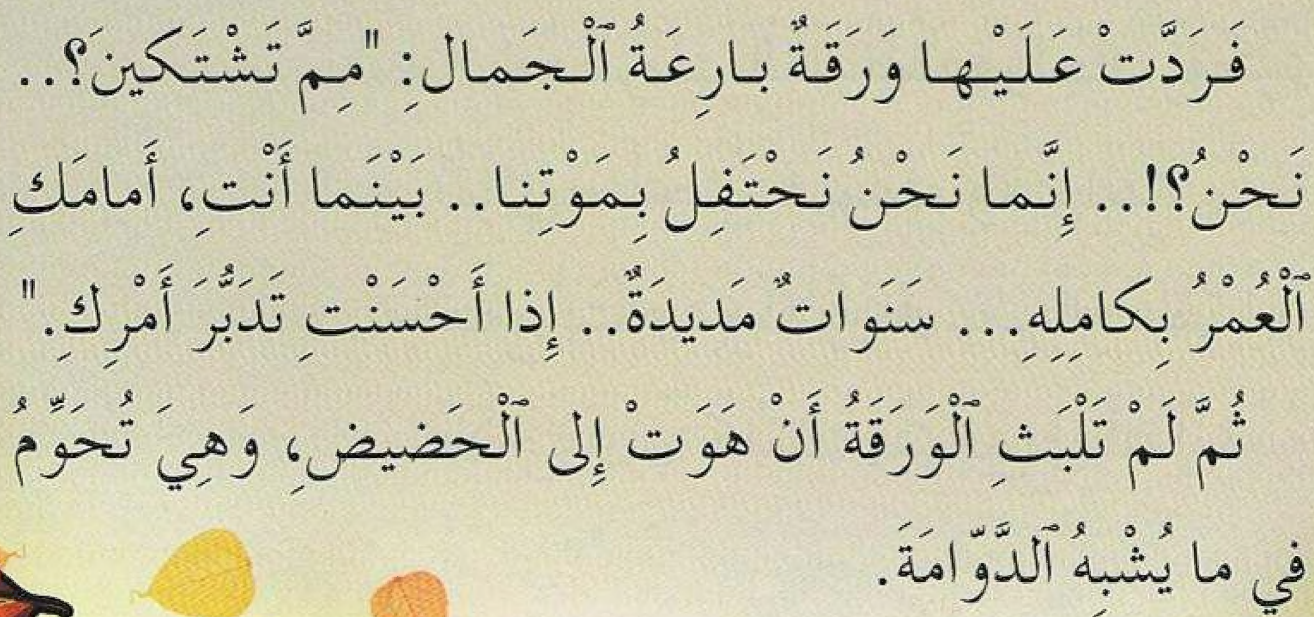 فَرَدَّتْ عَلَيْها وَرَقَةٌ بارِعَةُ ٱلْجَمالِ: "مِمَّ تَشْتَكينَ؟..
نَحْنُ؟!.. إِنَّما نَحْنُ نَحْتَفِلُ بِمَوْتِنا.. بَيْنَما أَنْتِ، أَمامَكِ
ٱلْعُمْرُ بِكامِلِهِ... سَنَواتٌ مَديدَةٌ.. إِذا أَحْسَنْتِ تَدَبُّرَ أَمْرِكِ."
ثُمَّ لَمْ تَلْبَثِ ٱلْوَرَقَةُ أَنْ هَوَتْ إِلى ٱلْحَضيضِ، وَهِيَ تُحَوِّمُ
في ما يُشْبِهُ ٱلدَّوّامَةَ.